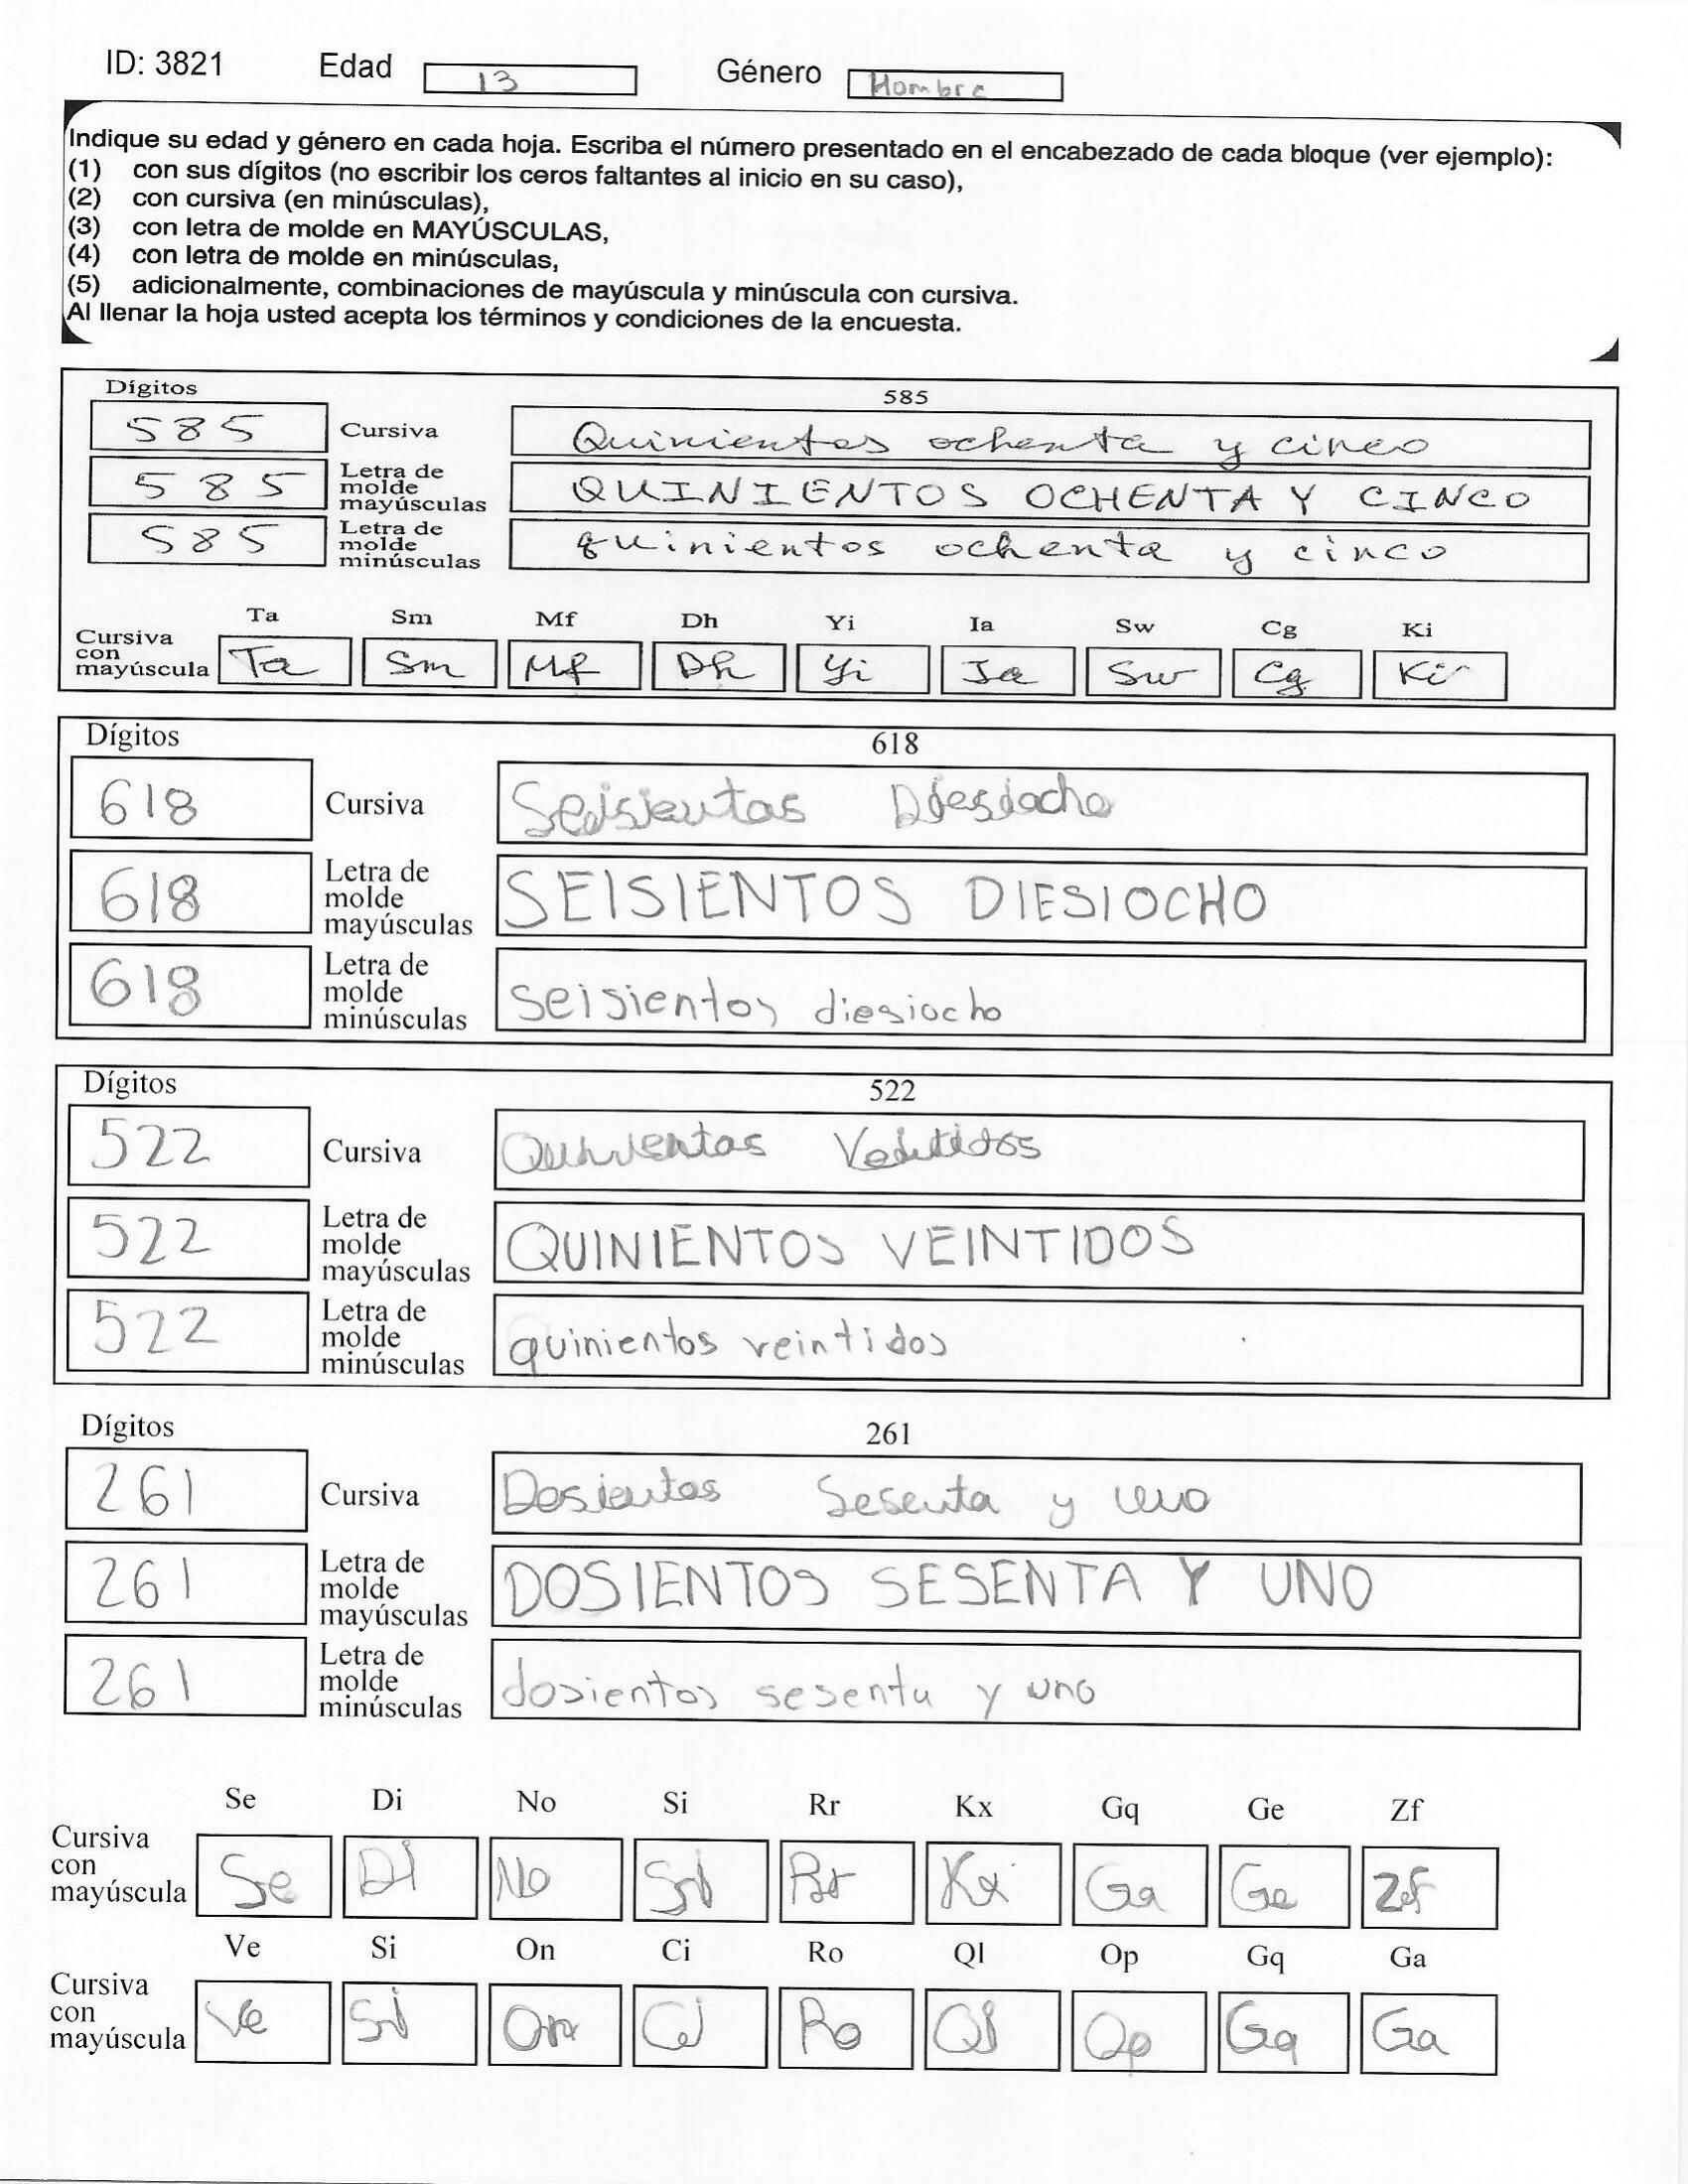 ID: 3821 Edad 13 Género Hombre
Indique su edad y género en cada hoja. Escriba el número presentado en el encabezado de cada bloque (ver ejemplo):
(1) con sus dígitos (no escribir los ceros faltantes al inicio en su caso),
(2) con cursiva (en minúsculas),
(3) con letra de molde en MAYÚSCULAS,
(4) con letra de molde en minúsculas,
(5) adicionalmente, combinaciones de mayúscula y minúscula con cursiva.
Al llenar la hoja usted acepta los términos y condiciones de la encuesta.
Dígitos 585
585 Cursiva Quinientos ochenta y cinco
585 Letra de molde mayúsculas QUINIENTOS OCHENTA Y CINCO
585 Letra de molde minúsculas quinientos ochenta y cinco
Ta Sm Mf Dh Yi Ia Sw Cg Ki
Cursiva con mayúscula Ta Sm Mf Dh Yi Ia Sw Cg Ki
Dígitos 618
618 Cursiva Seisientos Diesiocho
618 Letra de molde mayúsculas SEISIENTOS DIESIOCHO
618 Letra de molde minúsculas seisientos diesiocho
Dígitos 522
522 Cursiva Quinientos
522 Letra de molde mayúsculas QUINIENTOS VEINTIDOS
522 Letra de molde minúsculas quinientos veintidos
Dígitos 261
261 Cursiva Dosientos Sesenta y uno
261 Letra de molde mayúsculas DOSIENTOS SESENTA Y UNO
261 Letra de molde minúsculas dosientos sesenta y uno
Se Di No Si Rr Kx Gq Ge Zf
Cursiva con mayúscula Se Di No Si Rr Kx Ga Ge Zf
Ve Si On Ci Ro Ql Op Gq Ga
Cursiva con mayúscula Ve Si On Ci Ro Ql Op Gq Ga